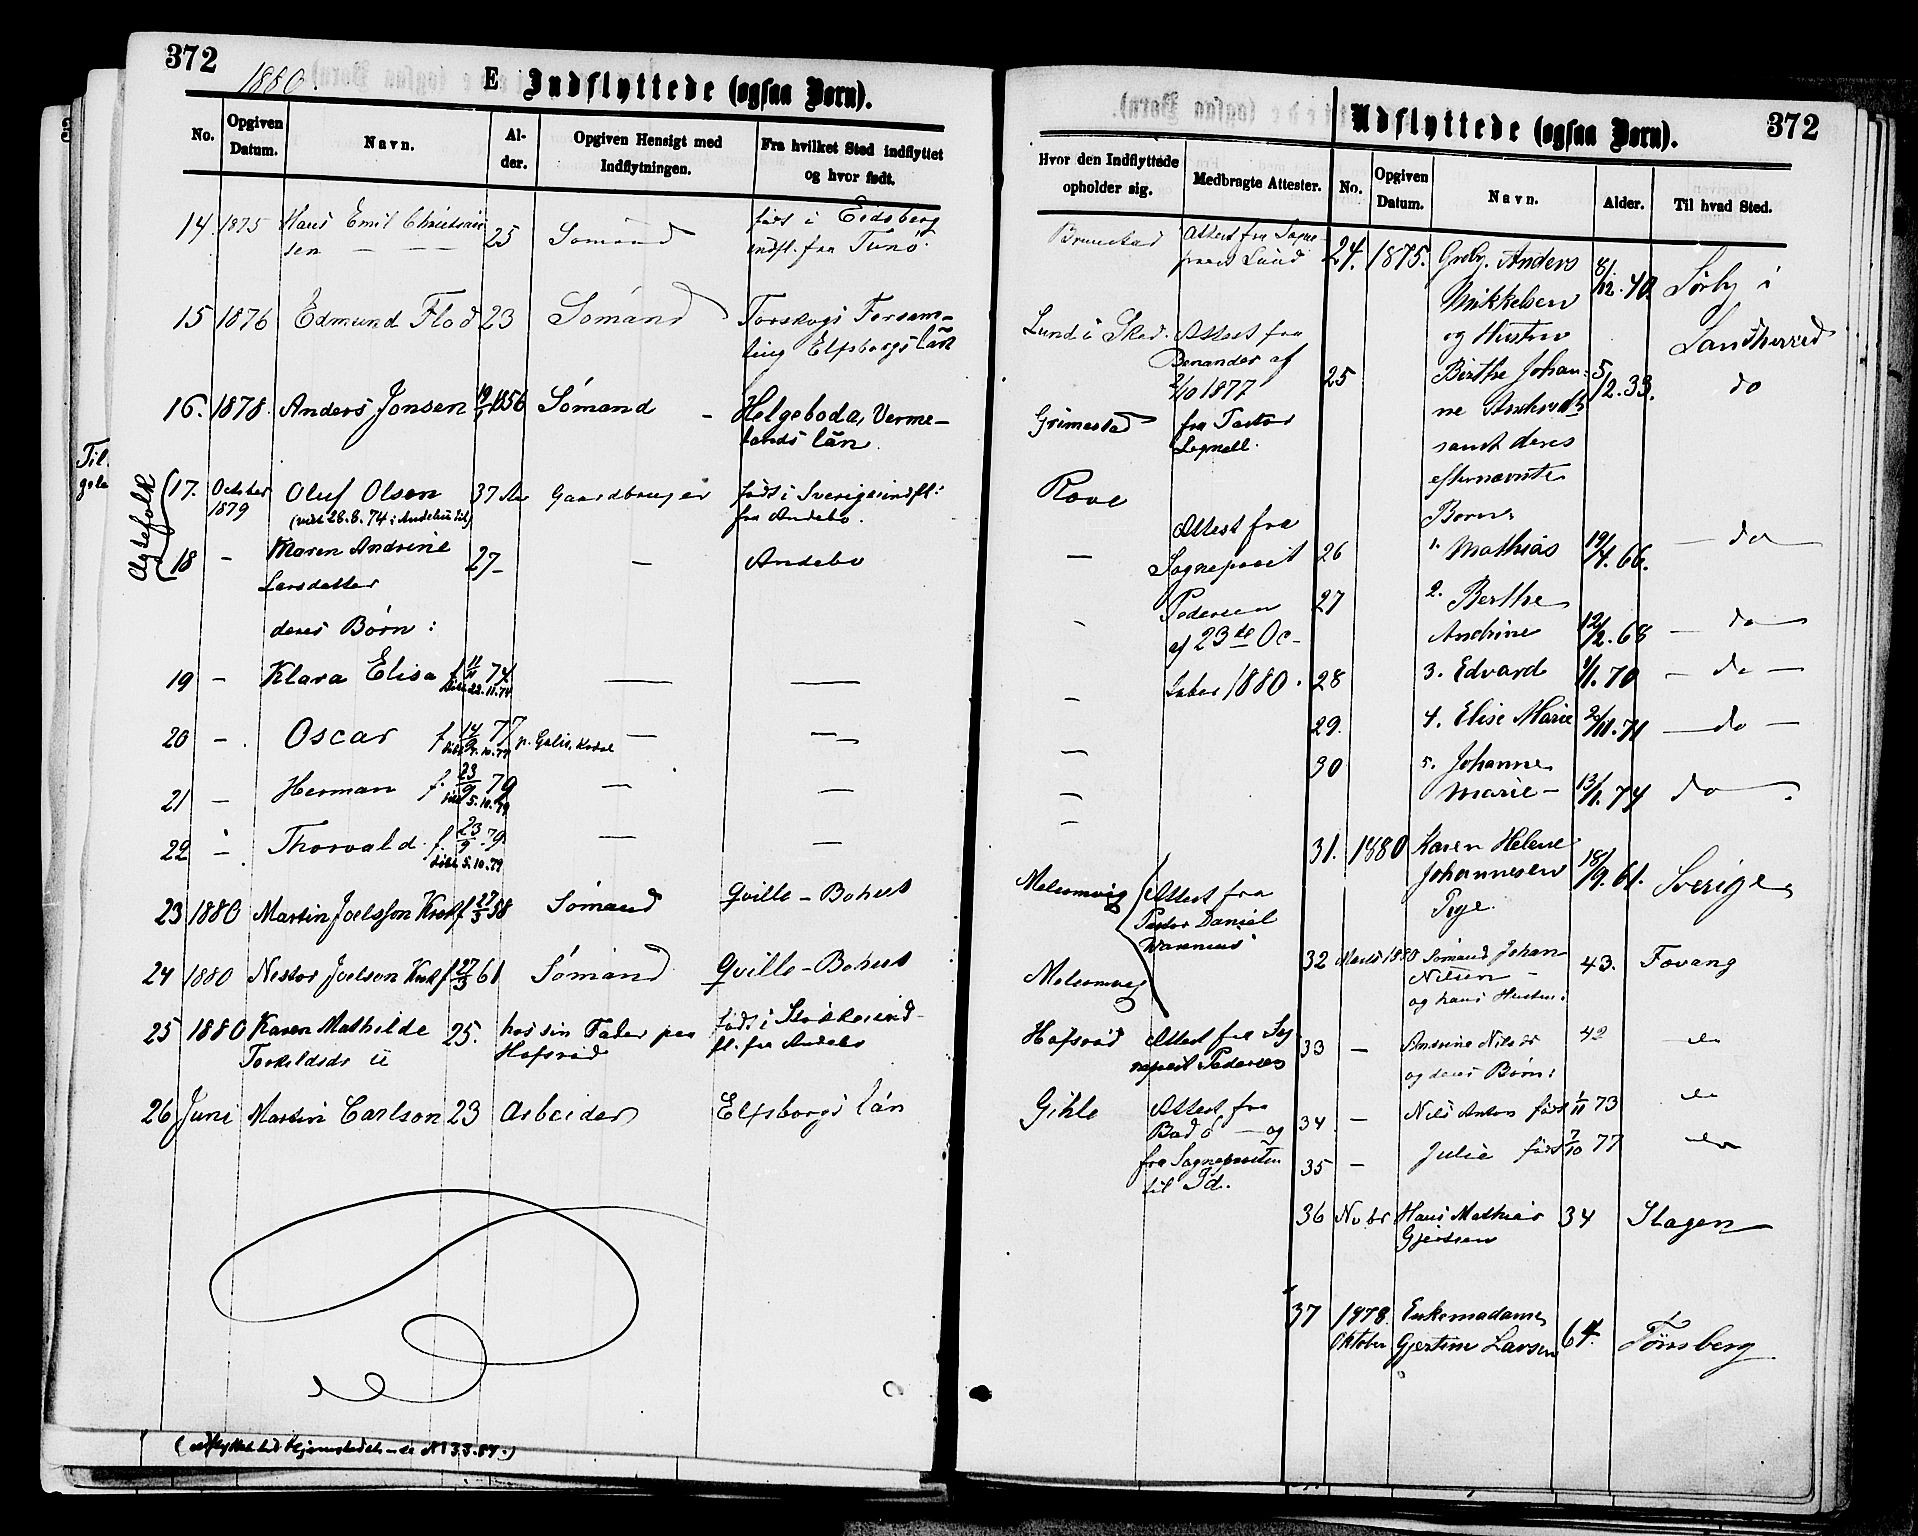 372
1880.
E Indflyttede (ogsaa Børn).
No.
Opgiven Datum.
Navn.
Al-
der.
Opgiven Hensigt med Indflytningen.
Fra hvilket Sted indflyttet og hvor født.
14. 1875 Hans Emil Christian 25 Sømand født i Eidsberg
sen — — indfl. fra Tunø.
15 1876 Edmund Flod 23 Sømand Torskogs Forsam-
ling Elfsborgs län
16. 1878. Anders Jonsen 1856 Sømand - Helgeboda, Verme-
lands län.
Til
Ægtefolk
17. October 1879 Oluf Olsen 37 Aar Gaardbruger født i Sverige indfl.
(viet 28.8.74 i Andebu fra Andebo.
18 - Maren Andrine 27 — Andebo
Larsdatter
deres Børn:
19 - Klara Elisa f. 11/11 74 — —
døbt 22.11.74
20 - Oscar f. 14/9 77 — —
21 - Herman f. 23/9 79 — —
døbt 5.10.79
22 - Thorvald f. 23/9 79 — —
døbt 5.10.79
23 1880 Martin Joelsson f. 27/3 58 Sømand Qville - Bohus
24 1880 Nestor Joelson f. 27/3 61 Sømand Qville - Bohus
25 1880 Karen Mathilde 25. hos sin Fader paa født i Stokke ind-
Torkildsdr Hafsrød fl. fra Andebo
26 Juni Martin Carlson 23 Arbeider Elfsborgs län
372
Udflyttede (ogsaa Børn).
Hvor den Indflyttede opholder sig.
Medbragte Attester.
No.
Opgiven Datum.
Navn.
Alder.
Til hvad Sted.
Brunstad Attest fra Sogne-
præst Lund
Lund i Attest fra
Benander af
2/10 1877
Grimestad fra Pastor
Rove
Attest fra
— Sognepræst
Pedersen
af 23de Oc-
tober 1880.
Melsomvig Attest fra
Pastor Daniel
Melsomvig
Hafsrød Attest fra Sog
nepræst Pedersen
Gihle Attest fra
Badø — og
fra Sognepræsten
til Id.
24. 1875. Grbr. Anders 8/12. 40. Sørby i
Mikkelsen Sandherred
og Hustru
25 Birthe Johan- 5/12. 33. do
ne
samt deres
efternævnte
Børn:
26 1. Mathias 19/4. 66. — do —
27 2. Berthe
Andrine 12/2. 68 — do —
28 3. Edvard 1/1. 70 — do —
29. 4. Elise Marie 2/11. 71 — do —
30 5. Johanne
Marie - 13/1. 74 do — .
31. 1880 Karen Helene 18/9. 61. Sverige
Johannesen
32 1880 Sømand Johan 43. Fovang
Nilsen -
og hans Hustru:
33 — Andrine 42
og deres Børn:
34 — Nils Anton født 1/11 73
35 — Julie født 7/10 77
36 Novbr Hans Mathias 34 Slagen
Gjertsen
37 1878. Enkemadame
Oktober Gjertine Larsen 64. Tønsberg